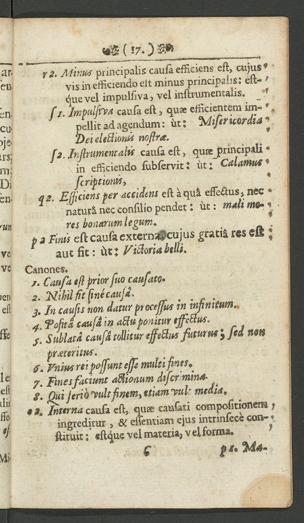 (17.)
r 2. Minus principalis causa efficiens est, cujus
vis in efficiendo est minus principalis: est-
que vel impulsiva, vel instrumentalis.
ſ 1. Impulsiva causa est, quæ efficientem im-
pellit ad agendum: ùt: Misericordia
Dei electionis nostræ.
ſ 2. Instrumentalis causa est, quæ principali
in efficiendo subservit: ùt: Calamus
scriptionis,
q 2. Efficiens per accidens est à quâ effectus, nec
naturâ nec consilio pendet: ùt: mali mo-
res bonarum legum.
p 2 Finis est causa externa, cujus gratiâ res est
aut fit: ùt: Victoria belli.
Canones.
1. Causa est prior suo causato.
2. Nihil fit sinè causâ.
3. In causis non datur processus in infinitum.
4. Positâ causâ in actu ponitur effectus.
5. Sublatâ causâ tollitur effectus futurus; sed non
præteritus.
6. Unius rei possunt esse multi fines.
7. Fines faciunt actionum discrimina.
8. Qui seriò vult finem, etiam vult media.
o 2. Interna causa est, quæ causati compositionem
ingreditur, & essentiam ejus intrinsecè con-
stituit: estque vel materia, vel forma.
6 p 1. Ma-